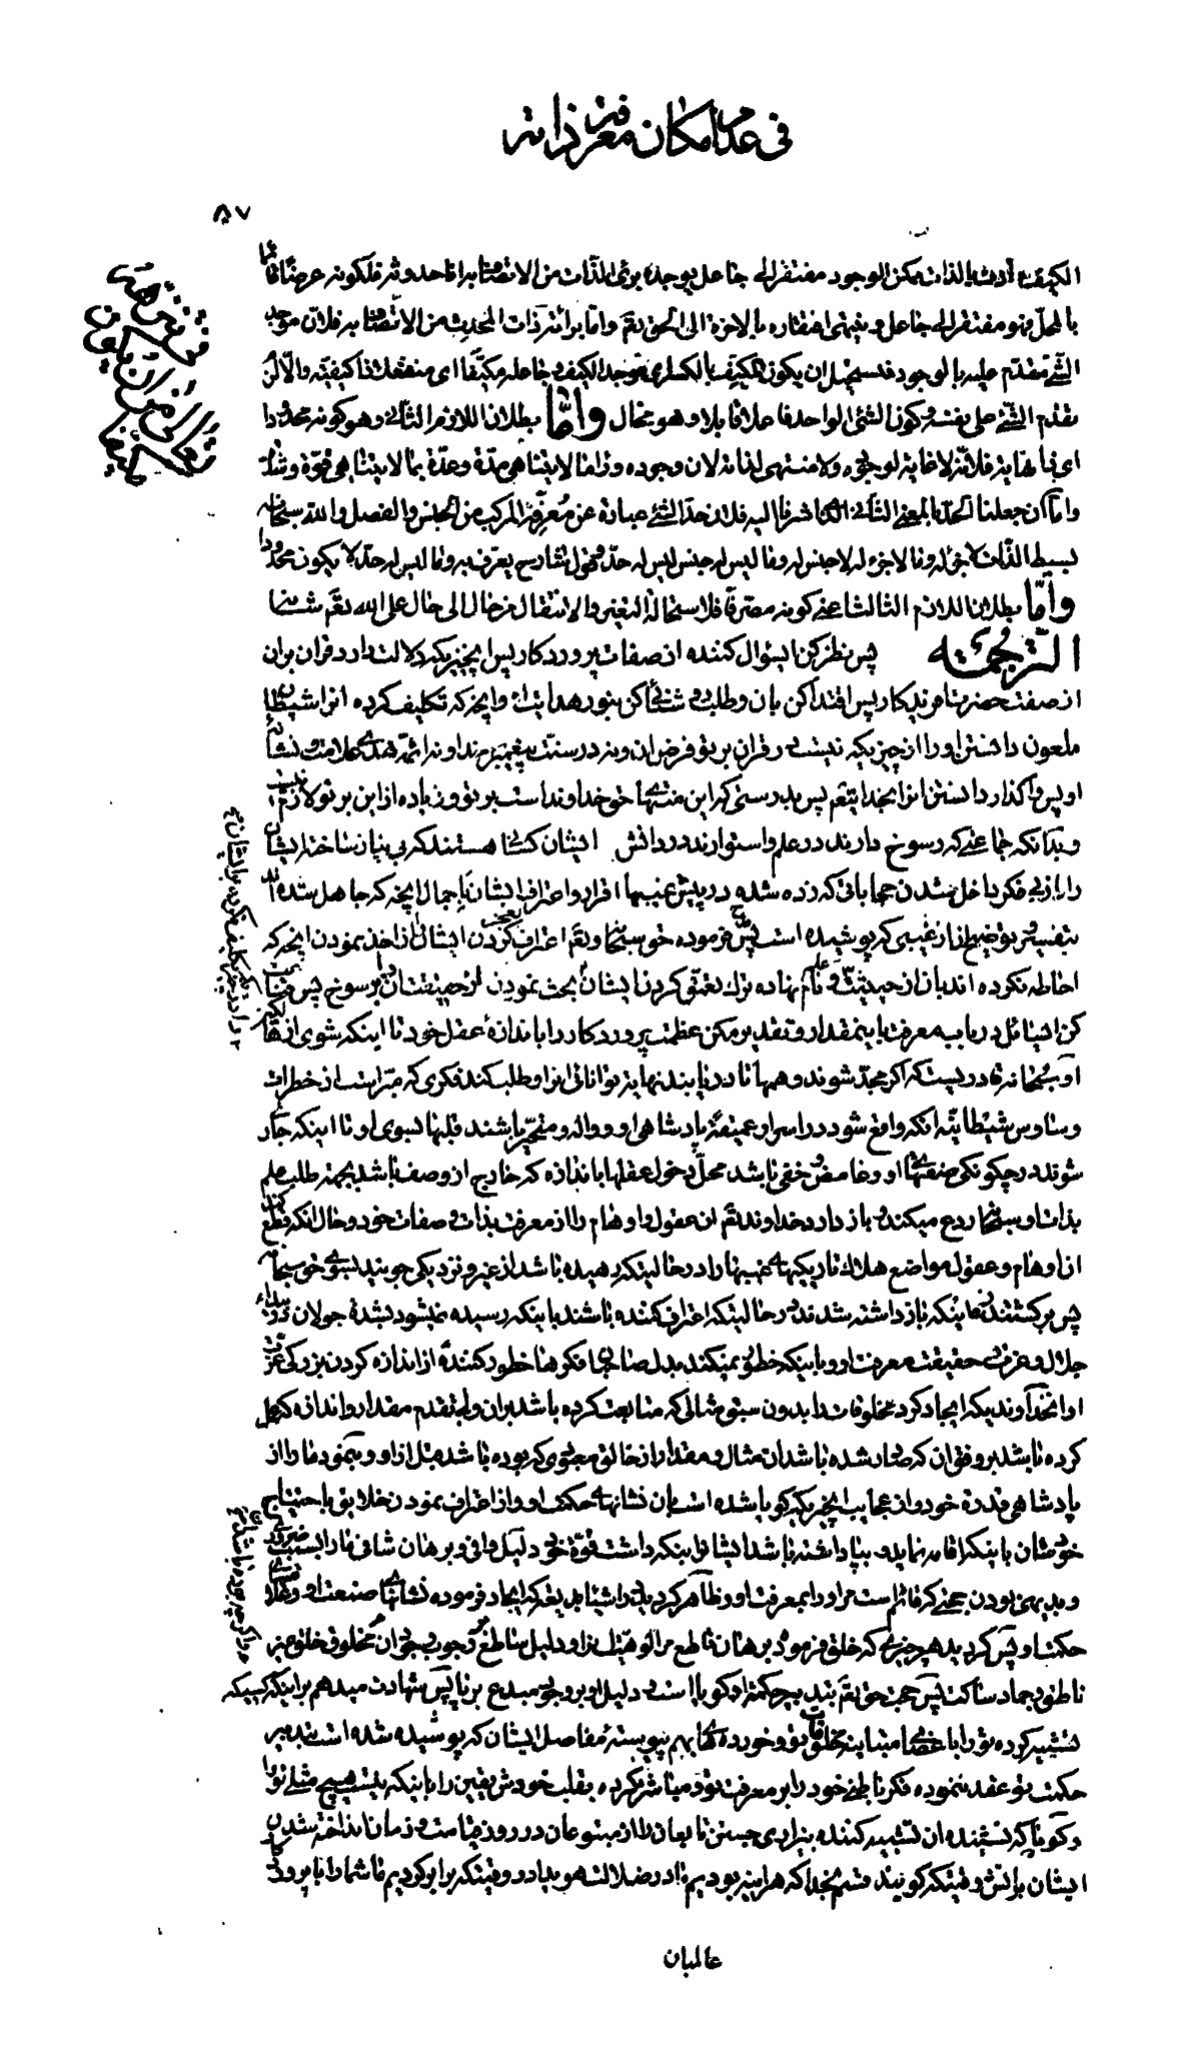 في عدم امكان معرفة ذاته
۸۷
الكيف حادث بالذات ممكن الوجود مفتقر الى جاعل يوجده برئ الذات من الاتصاف به اما حدوثه فلكونه عرضا قائما
بالمحل فهو مفتقر الى جاعل وينتهى افتقاره بالاخرة الى الحق تعم واما برائة ذات المحدث من الاتصاف به فلان موجد
الشئ متقدم عليه بالوجود فيستحيل ان يكون المكيف بالكسر اى موجد الكيف و جاعله مكيفا اى منفعلا والا لزم
تقدم الشئ على نفسه وكون الشئ الواحد فاعلا قابلا وهو محال واما بطلان اللازم الثانى وهو كونه محدودا
اى ذا نهاية فلانه لا غاية لوجوده ولا منتهى لذاته لان وجوده وراء ما لا يتناهى مدة وعدة بما لا يتناهى قوة وشدة
واما ان جعلنا الحد بالمعنى الثانى الذى اشرنا اليه فلان حد الشئ عبارة عن معرفه المركب من الجنس والفصل والله سبحانه
بسيط الذات لا جزء له وما لا جزء له لا جنس له وما ليس له جنس ليس له حد يعرف به وما ليس له حد لا يكون محدودا
واما بطلان اللازم الثالث اعنى كونه مصرفا فلاستحالة التغير والانتقال من حال الى حال على الله تعم شانه
الترجمته پس نظر كن اى سؤال كننده از صفات پروردكار پس انچيزيكه دلالت دارد قران بران
از صفت حضرت افريدكار پس اقتدا كن بان وطلب روشنائى كن بنور هدايت او وانچه كه تكليف كرده ترا شيطان
ملعون دانستن او را از چيزيكه نيست در قران بر تو فرض ان ونه در سنت پيغمبر خداو نه ائمه هدى علامت ونشانه
او پس واكذار دانستن انرا بخدا يتعم پس بدرستى كه اين منتهاى حق خداوند است بر تو وزياده از اين بر تو لازم نيست
وبدانكه جماعتى كه رسوخ دارند در علم واستوارند در دانش ايشان كسانى هستند كه بى نياز ساخته ايشان
را از بى فكر داخل شدن حجاباتى كه زده شده در پيش غيبها اقرار واعتراف ايشان باجمال انچه كه جاهل شده اند
بتفسير وتوضيح ان از غيبى كه پوشيده است پس مدح فرموده حق سبحانه وتعم اعتراف كردن ايشان را بعجز از اخذ نمودن انچه كه
احاطه نكرده اند بان از حيثيت علم ونام نهاده ترك تعمق كردن ايشان را
كن اى سائل در باب معرفت باينمقدار وتقدير مكن عظمت پروردكار را باندازه عقل خود تا اينكه شوى از
او سبحانه قادريست كه اكر مجد شوند وهمها تا دريابند نهايت توانائى او را وطلب كند فكرى كه مبراست از خطرات
وساوس شيطانيه انكه واقع شود در اسرار عميقه پادشاهى او وواله ومتحير باشند قلبها بسوى او تا اينكه جارى
شوند در چكونكى صفتهاى او وغامض وخفى باشد محل دخول عقلها باندازه كه خارج از وصف باشد بجهة طلب علم
بذات او سبحانه ردع ميكند وباز دارد خداوند تعم ان عقول واوهام را از معرفت بذات وصفات خود وحال انكه قطع كنند
ان اوهام وعقول مواضع هلاك تاريكيهاى غيبها را در حالتيكه رهيده باشد از غير ونزديكى جويند بسوى حق سبحانه
پس بركشتند زمانيكه باز داشته شدند در حالتيكه اعتراف كننده باشند باينكه رسيده نميشود بشدة جولان در بيداء
جلال وعزت حقيقت معرفت او وباينكه خطور نميكند بدل صاحبان فكرها خطور كننده از اندازه كردن بزركى عزت
او ان خداونديكه ايجاد كرد مخلوقات را بدون سبق مثالى كه متابعت كرده باشد بران وبى تقدم مقدار واندازه كه عمل
كرده باشد بر وفق ان كه صادر شده باشد ان مثال ومقدار از خالق معبودى كه بوده باشد قبل از او وبنمود ما را از
پادشاهى قدرة خود واز عجايب انچيزيكه كويا شده است بان نشانهاى حكمت او واز اعتراف نمودن خلايق باحتياج
خودشان باينكه اقامه نمايد وبپا داشته باشد ايشان را بنكه داشت قوة خود دليل وافى وبرهان شافى ما را بسبب ضرورى
وبديهى بودن حجتى كه قائم است مر او را بمعرفت او وظاهر كرديد در اشياء بديعه كه ايجاد فرموده نشانهاى صنعت او
حكمت او پس كرديد هر چيزى كه خلق فرموده برهان قاطع مر الوهيت او را ودليل ساطع بر وجوب وجود او ان مخلوق خلق غير
ناطق وجماد ساكت پس حجت حق تعم بتدبير وحكمت او كويا است ودليل او بر وجود مبدع برپا پس شهادت ميدهم براينكه كسيكه
تشبيه كرده تو را باعضاى متباينه مخلوقات تو وخوردهاى بهم پيوسته مفاصل ايشان كه پوشيده شده است بتدبير
حكمت تو عقد ننموده فكر باطنى خود را بر معرفت تو ومباشر نكرده بقلب خودش يقين را باينكه نيست هيچ مثلى تو را
وكويا كه نشنيده ان تشبيه كننده بيزارى جستن تابعان را از متبوعان در روز قيامت وزمان انداخته شدن
ايشان باتش وقتيكه كويند قسم بخدا كه هراينه بوديم ما در ضلالت هويدا در وقتيكه برابر كرديم ما شما را با پروردكار
عالميان